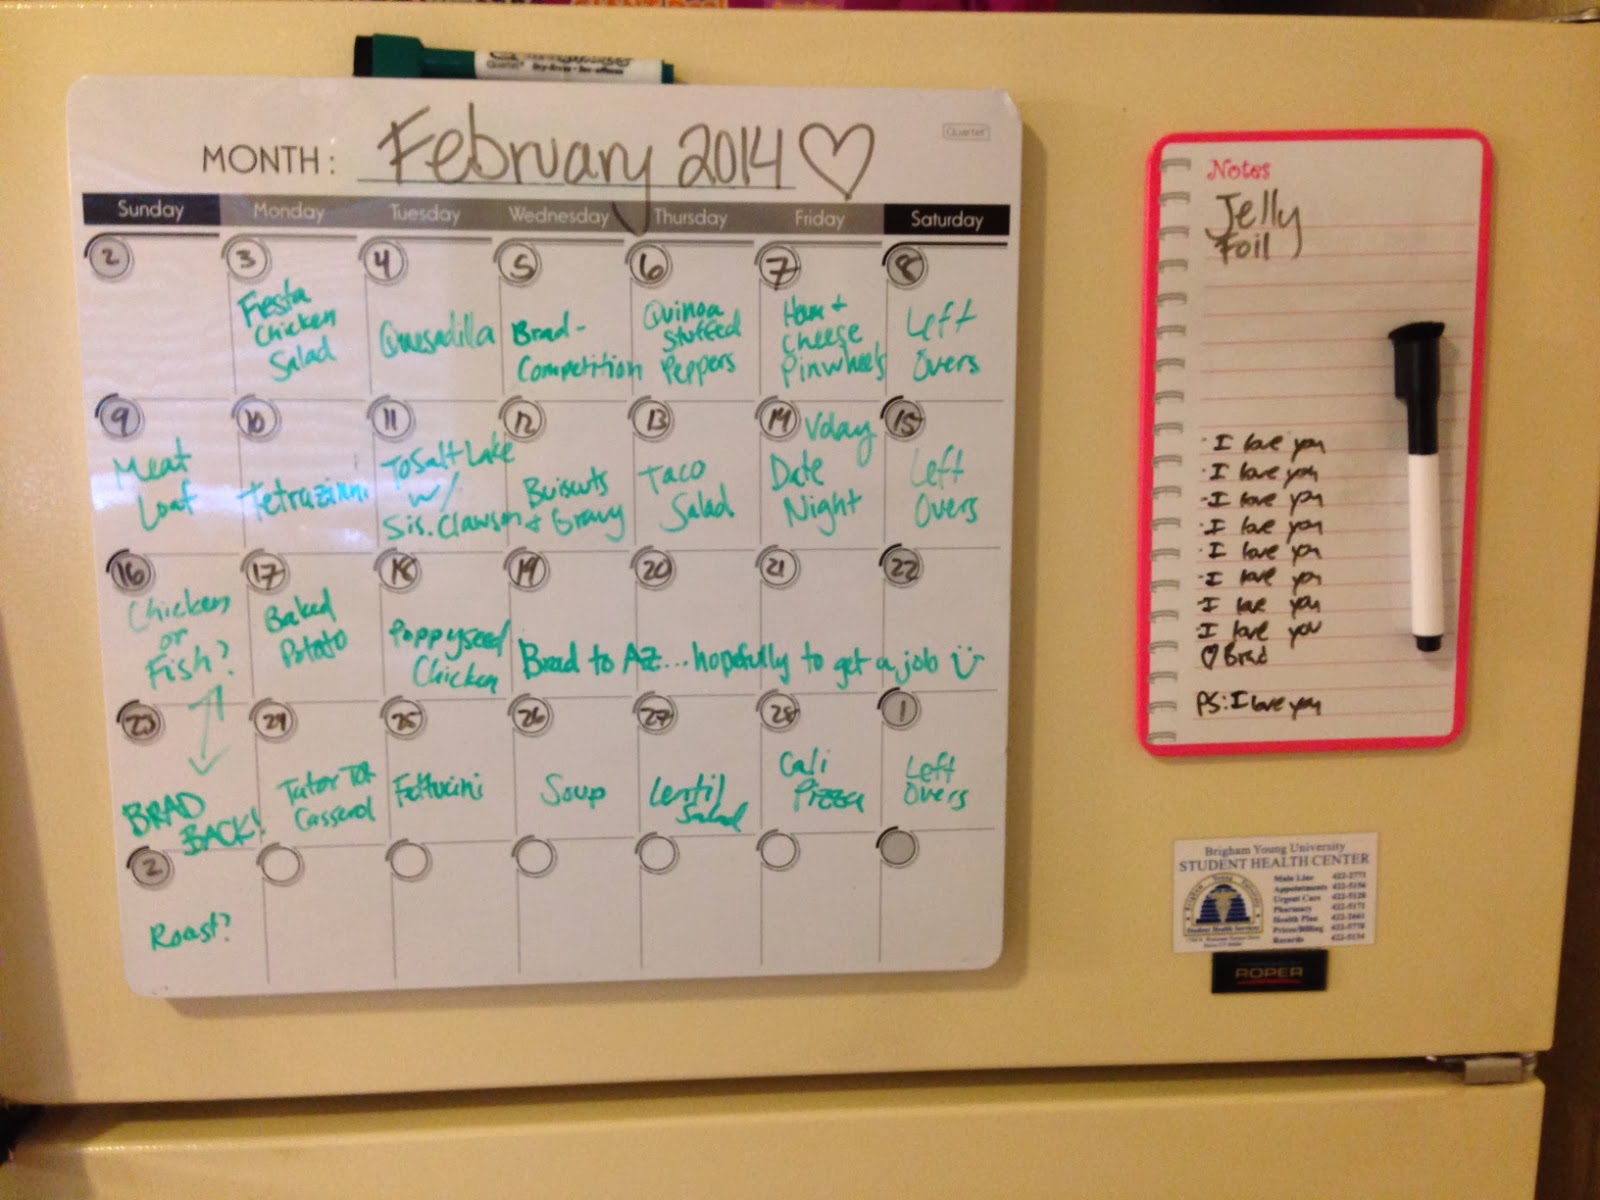 Quartet
Dry-Erase
MONTH: February 2014 ♡
Quartet
Sunday Monday Tuesday Wednesday Thursday Friday Saturday
2 3 4 5 6 7 8
Fiesta
Chicken
Salad
Quesadilla
Brad-
Competition
Quinoa
Stuffed
Peppers
Ham +
Cheese
Pinwheels
Left
Overs
9 10 11 12 13 14 Vday 15
Meat
Loaf
Tetrazinni
To Salt Lake
w/
Sis. Clawson
Buiscuts
+ Gravy
Taco
Salad
Date
Night
Left
Overs
16 17 18 19 20 21 22
Chicken
or
Fish?
Baked
Potato
Poppyseed
Chicken
Brad to AZ...hopefully to get a job
23 24 25 26 27 28 1
BRAD
BACK!
Tator Tot
Casserol
Fettucini
Soup
Lentil
Salad
Cali
Pizza
Left
Overs
2
Roast?
Notes
Jelly
Foil
·I love you
·I love you
·I love you
·I love you
·I love you
·I love you
·I love you
·I love you
♡ Brad
PS: I love you
Brigham Young University
STUDENT HEALTH CENTER
Main Line 422-2771
Appointments 422-5156
Urgent Care 422-5128
Pharmacy 422-5171
Health Plan 422-2661
Prices/Billing 422-5778
Records 422-5134
Student Health Services
ROPER